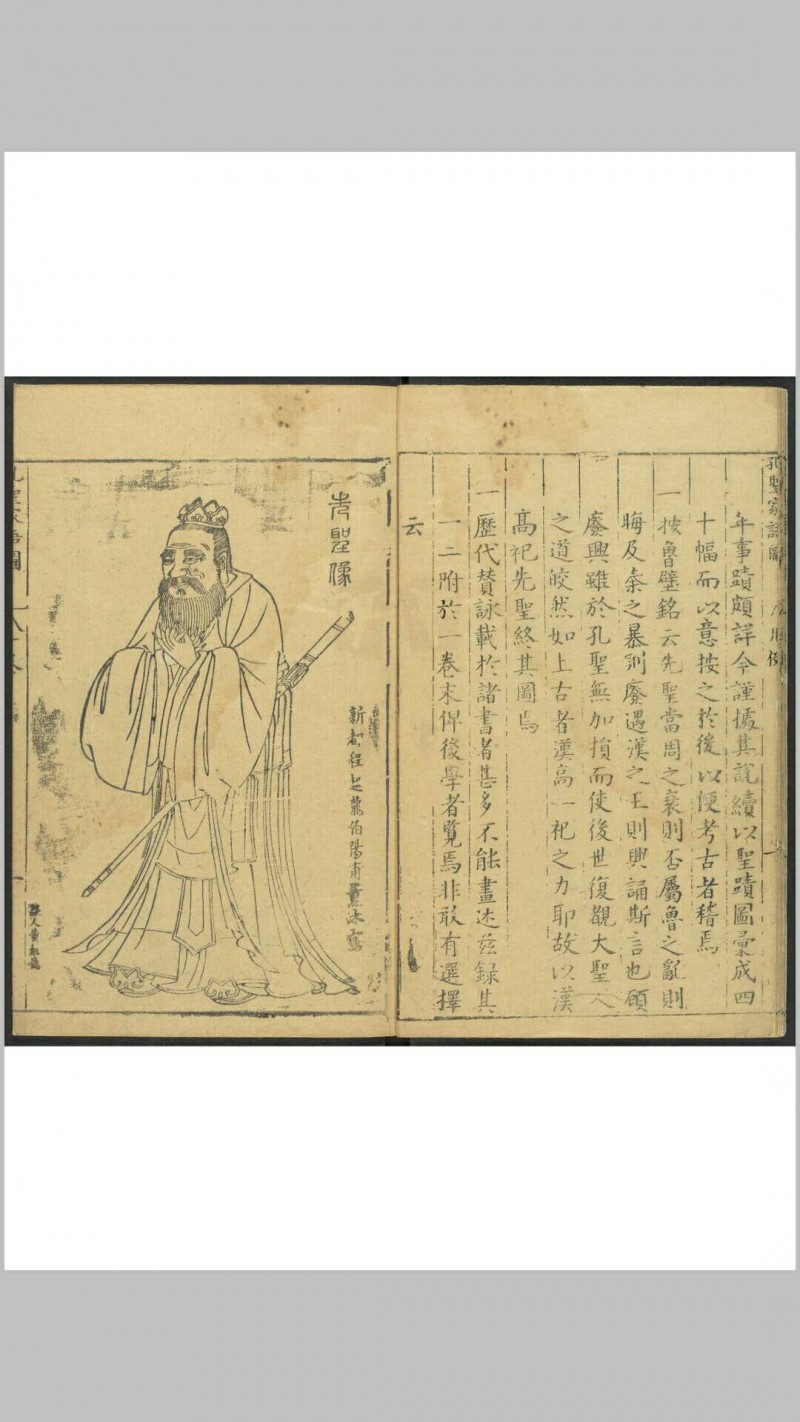 孔聖家語圖
凡例
年事蹟頗詳今謹據其說續以聖蹟圖彙成四
十幅而以意按之於後以便考古者稽焉
一按魯壁銘云先聖當周之衰則否屬魯之亂則
晦及秦之暴則廢遇漢之王則興誦斯言也顧
廢興雖於孔聖無加損而使後世復觀大聖人
之道皎然如上古者漢高一祀之力耶故以漢
高祀先聖終其圖焉
一歷代贊詠載於諸書者甚多不能盡述茲錄其
一二附於一卷末俾後學者覽焉非敢有選擇
云
先聖像
新都程起龍伯陽甫薰沐寫